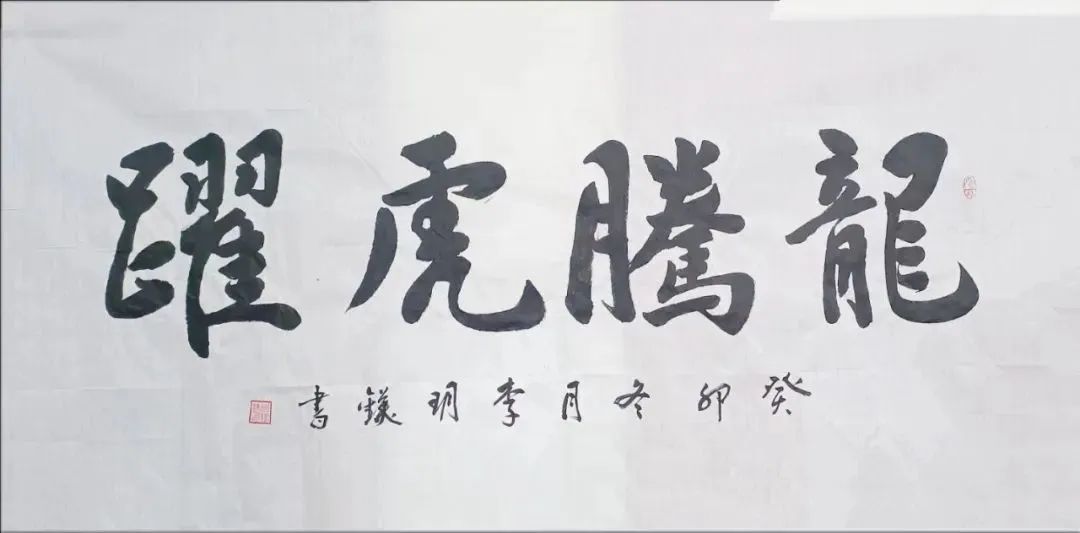 龍騰虎躍
癸卯冬月李玥鎂書